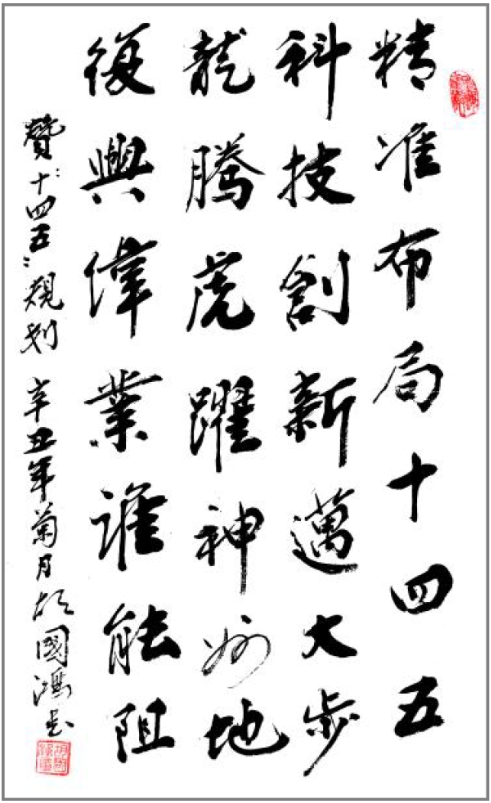 精准布局十四五
科技創新邁大步
龍腾虎躍神州地
復興偉業誰能阻
贊"十四五"规划 辛丑年菊月胡國鴻书